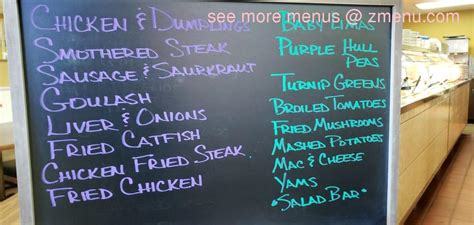 see more menus @ zmenu.com
CHICKEN & DUMPLINGS
SMOTHERED STEAK
SAUSAGE & SAURKRAUT
GOULASH
LIVER & ONIONS
FRIED CATFISH
CHICKEN FRIED STEAK
FRIED CHICKEN
BABY LIMAS
PURPLE HULL
PEAS
TURNIP GREENS
BROILED TOMATOES
FRIED MUSHROOMS
MASHED POTATOES
MAC & CHEESE
YAMS
*SALAD BAR*